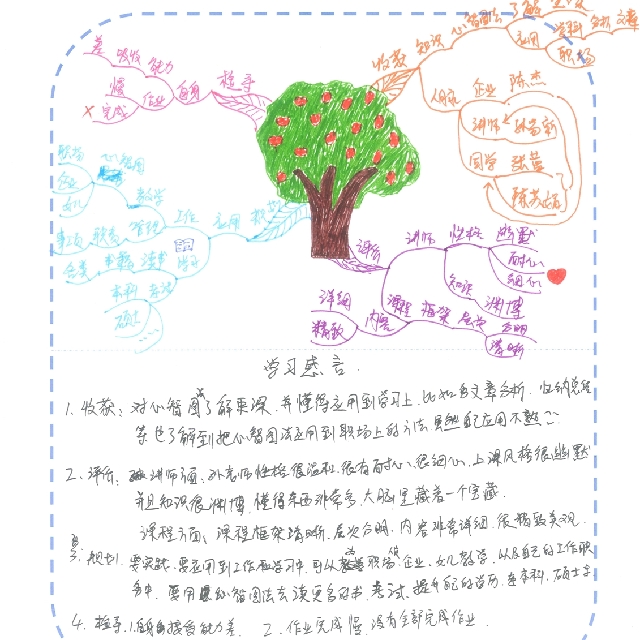 收获
知识
心智图法
了解
应用
资料
分析
文章
职场
人脉
企业
陈杰
讲师
同学
检讨
自身
吸收
能力
差
作业
慢
完成
应用
工作
学习
教学
心智图
职场
企业
幼儿
管理
职责
事项
读书
书籍
分类
考试
本科
硕士
评价
讲师
性格
幽默
耐心
细心
知识
渊博
课程
框架
层次
分明
清晰
内容
详细
精致
学习感言.
1. 收获: 对心智图法了解更深, 并懂得应用到学习上, 比如多文章分析, 归纳总结
等也了解到把心智图法应用到职场上的方法, 虽然应用不熟
2. 评价: 讲师方面, 老师性格很温和, 很有耐心、很细心, 上课风格很幽默
并且知识很渊博, 懂得东西非常多, 大脑里藏着一个宝藏.
课程方面: 课程框架清晰, 层次分明, 内容非常详细, 很精致美观.
3. 规划: 要实践, 要应用到工作和学习中, 可以职场、企业、幼儿教学, 以及自己的工作职
务中, 要用心智图法去读更多的书, 考试, 提升自己的学历, 本科, 硕士
4. 检讨: 1. 自身接受能力差 2. 作业完成慢, 没有全部完成作业.